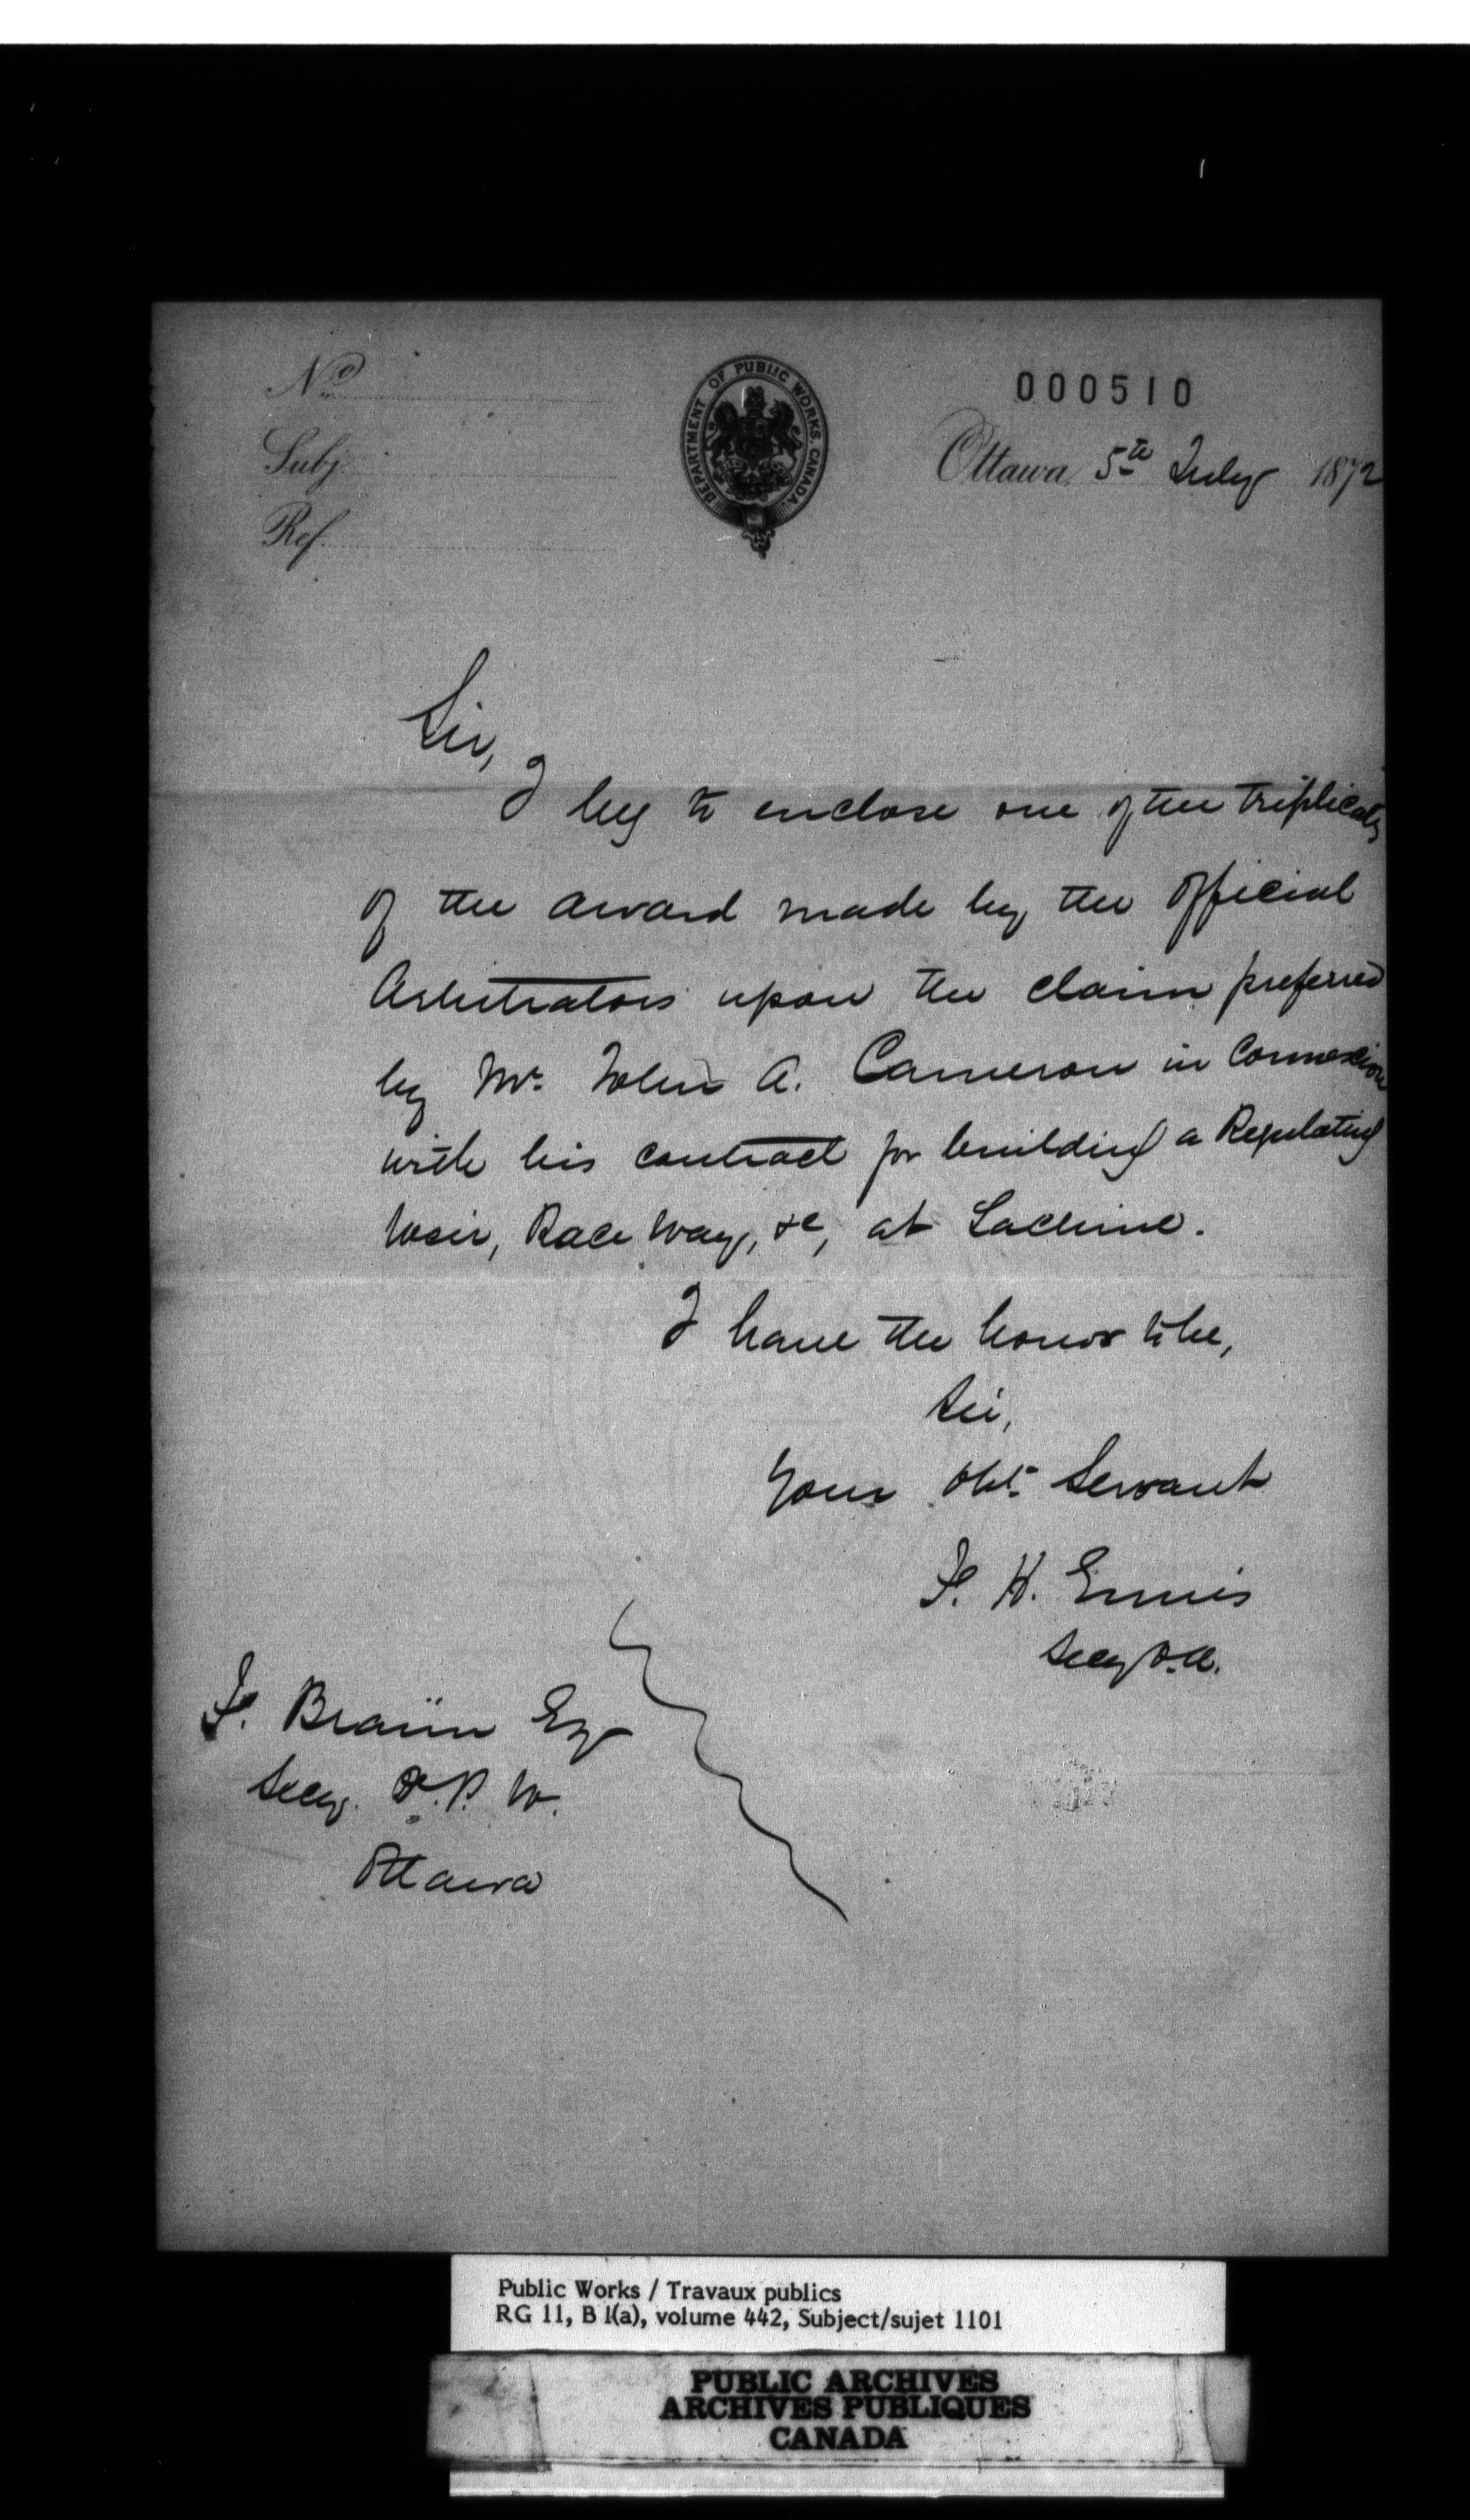 No.
Subj.
Ref.
DEPARTMENT OF PUBLIC WORKS. CANADA.
000510
Ottawa, 5th July 1872
Sir,
I beg to enclose one of the triplicates
of the award made by the Official
Arbitrators upon the claim preferred
by Mr. John A. Cameron in Connexion
with his contract for building a Regulating
Weir, Race Way, &c, at Lachine.
I have the honor to be,
Sir,
Your Obt. Servant
F. H. Ennis
Secy O.A.
F. Braün Esq
Secy. D.P.W.
Ottawa
Public Works / Travaux publics
RG 11, B 1(a), volume 442, Subject/sujet 1101
PUBLIC ARCHIVES
ARCHIVES PUBLIQUES
CANADA